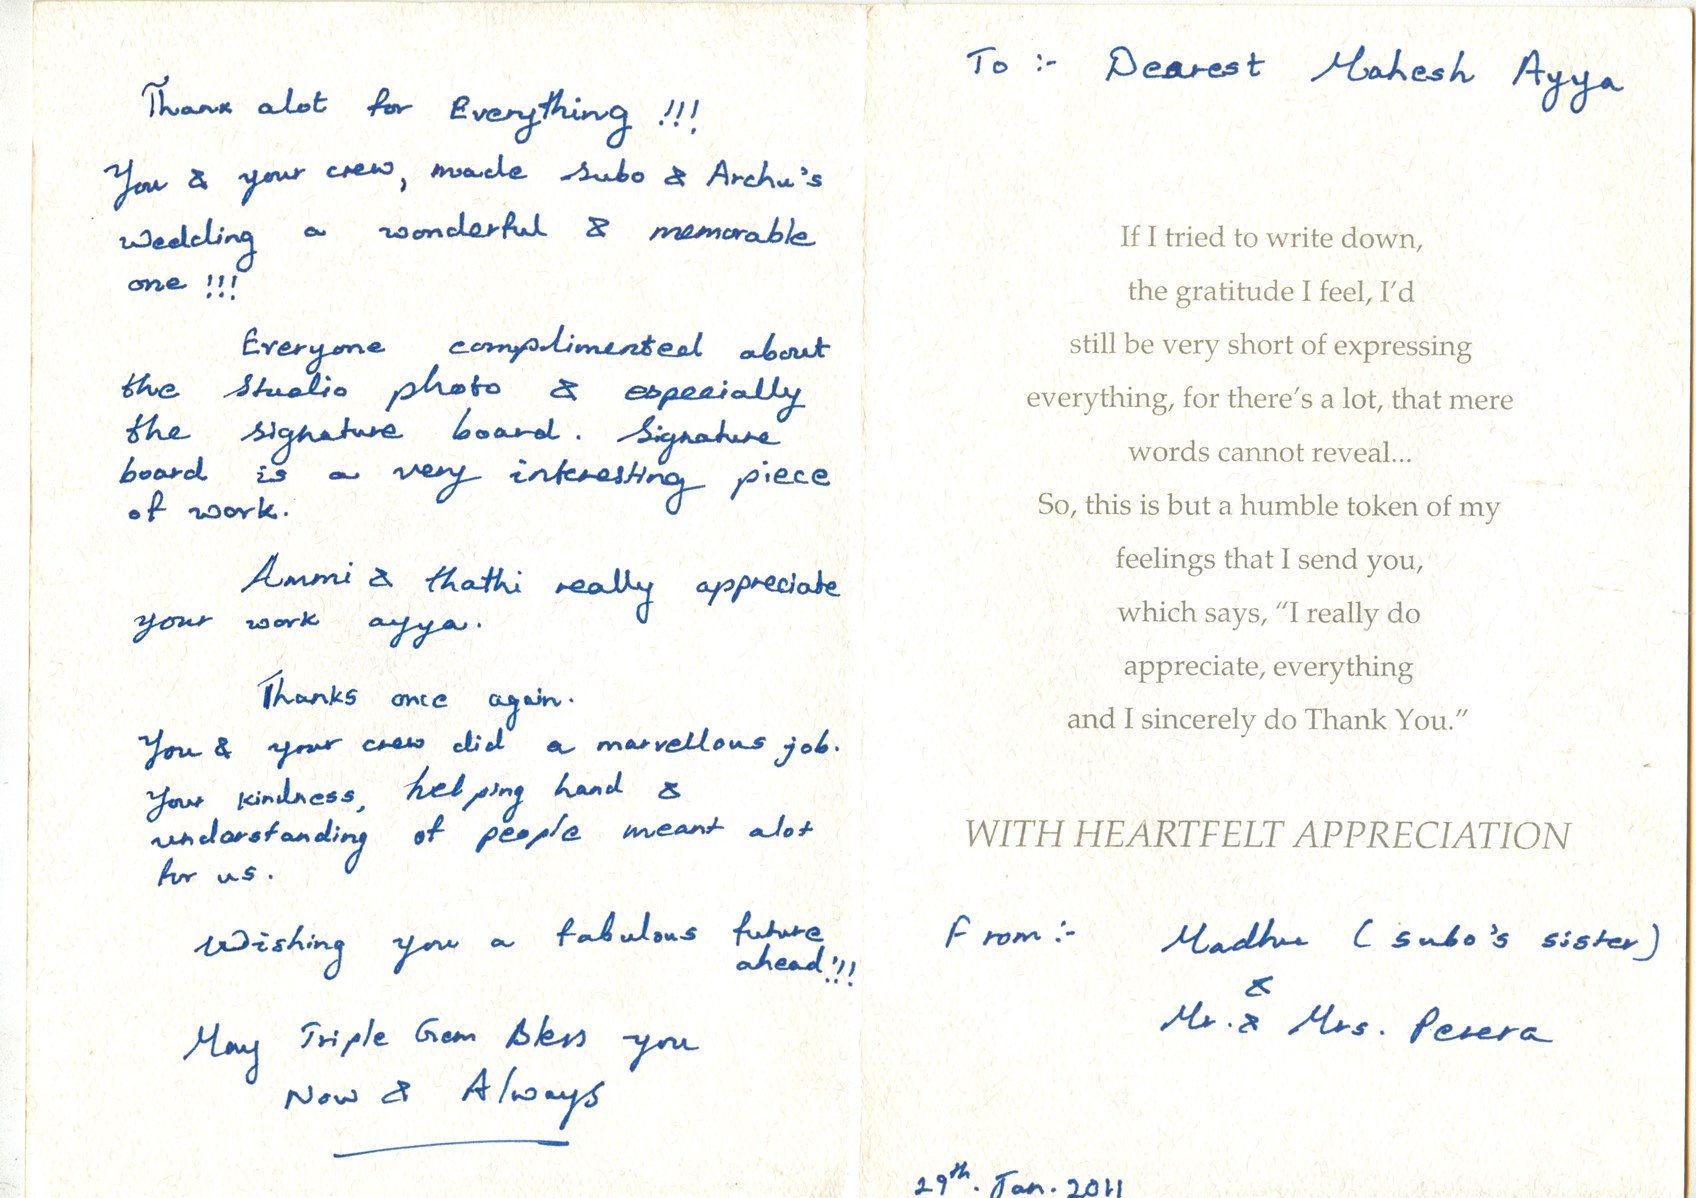 Thanx alot for Everything !!!
You & your crew, made Subo & Archu's
wedding a wonderful & memorable
one !!!
Everyone complimented about
the studio photo & especially
the signature board. Signature
board is a very interesting piece
of work.
Ammi & thathi really appreciate
your work ayya.
Thanks once again.
You & your crew did a marvellous job.
Your kindness, helping hand &
understanding of people meant alot
for us.
Wishing you a fabulous future
ahead!!!
May Triple Gem Bless you
Now & Always
To :- Dearest Mahesh Ayya
If I tried to write down,
the gratitude I feel, I'd
still be very short of expressing
everything, for there's a lot, that mere
words cannot reveal...
So, this is but a humble token of my
feelings that I send you,
which says, "I really do
appreciate, everything
and I sincerely do Thank You."
WITH HEARTFELT APPRECIATION
From :- Madhu (Subo's sister)
&
Mr. & Mrs. Perera
29th. Jan. 2011